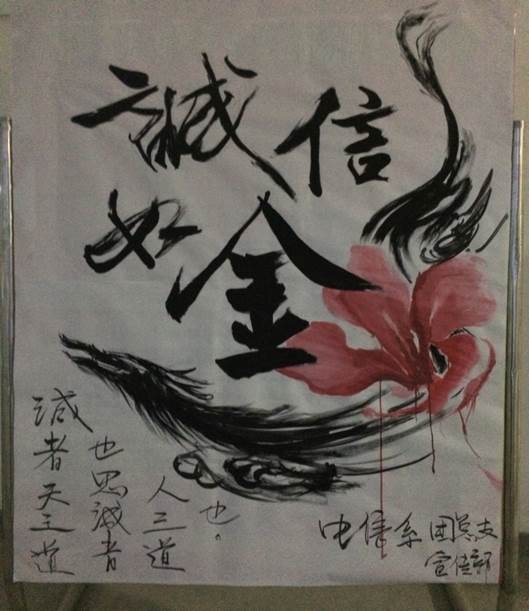 誠信
如金
诚者天之道
也思诚者
人之道
也。
电信系 团总支
宣传部